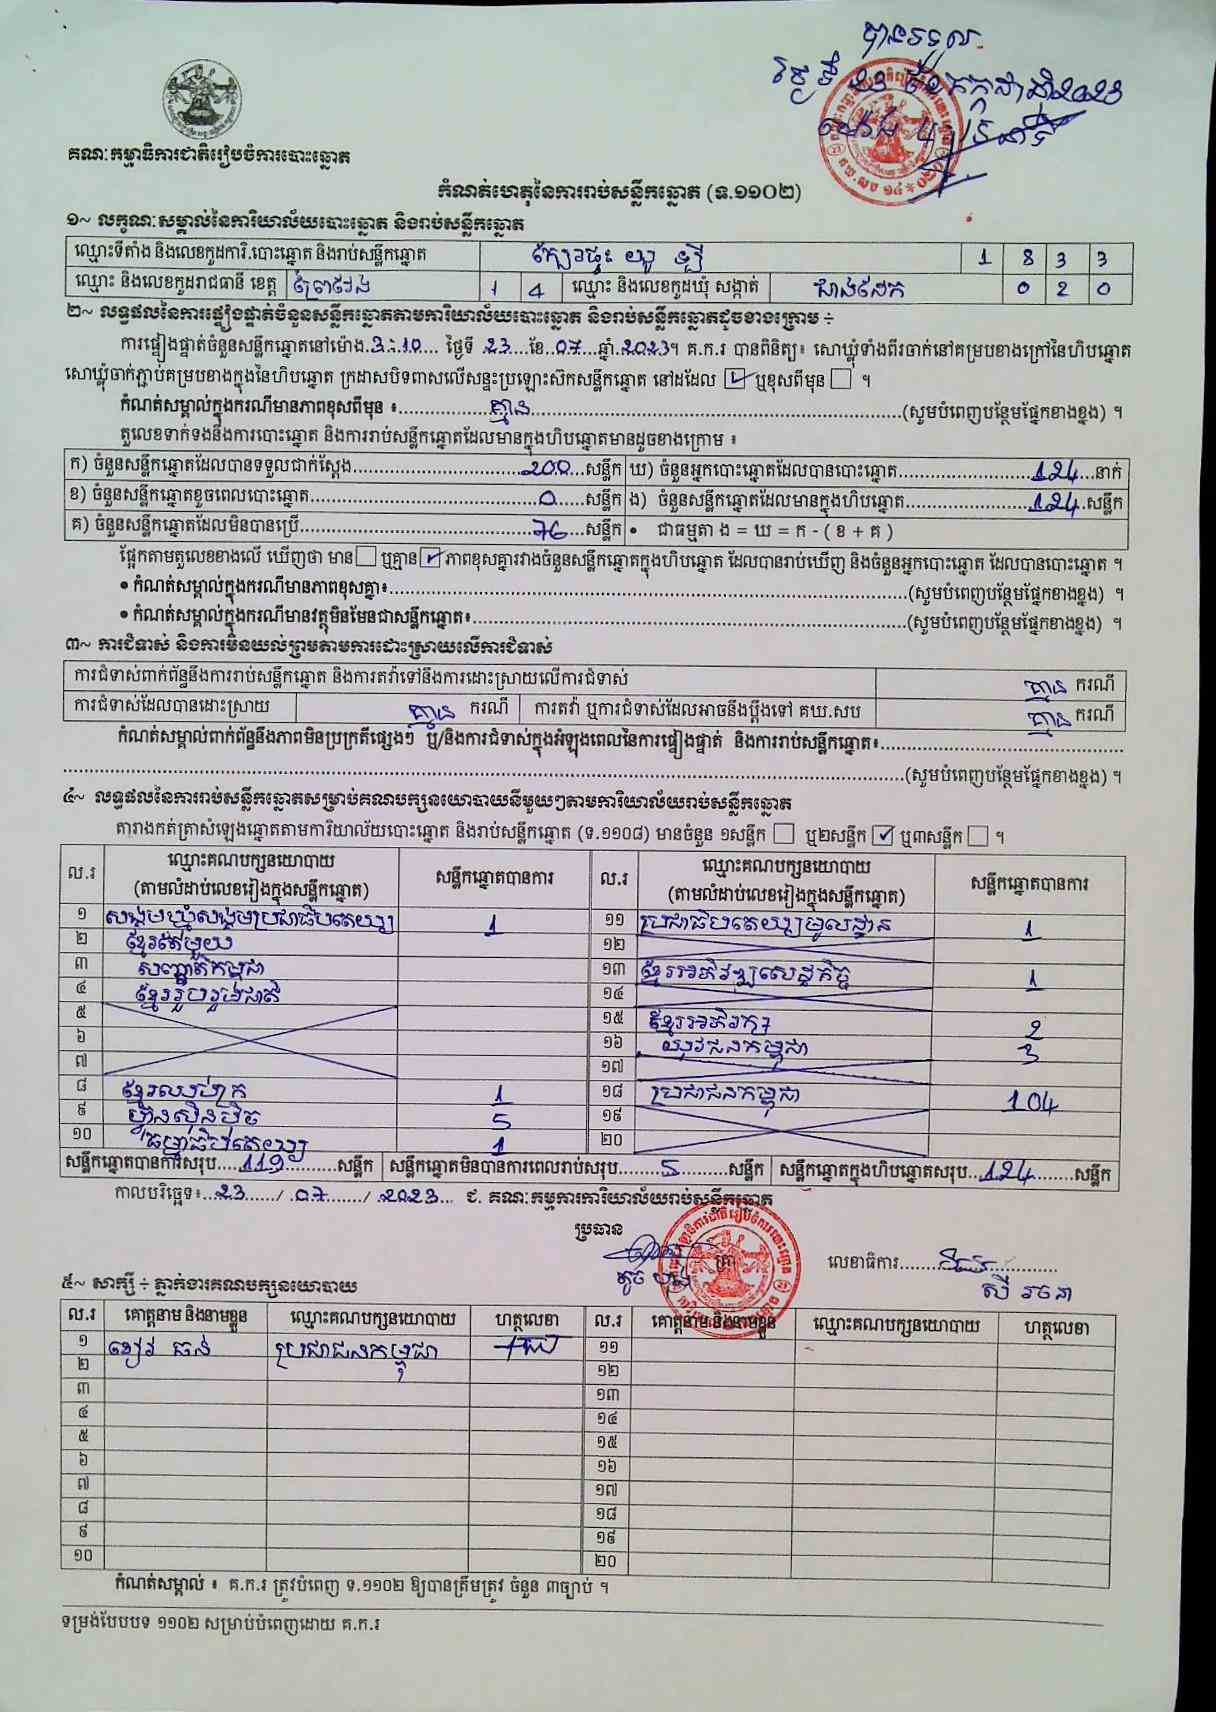 បានទទួល
ថ្ងៃទី 23 ខែកក្កដា ឆ្នាំ2023
គណៈកម្មាធិការជាតិរៀបចំការបោះឆ្នោត
កំណត់ហេតុនៃការរាប់សន្លឹកឆ្នោត (ទ.១១០២)
១~ លក្ខណៈសម្គាល់នៃការិយាល័យបោះឆ្នោត និងរាប់សន្លឹកឆ្នោត
ឈ្មោះទីតាំង និងលេខកូដការិ.បោះឆ្នោត និងរាប់សន្លឹកឆ្នោត 1 8 3 3
ឈ្មោះ និងលេខកូដរាជធានី ខេត្ត ព្រៃវែង 1 4 ឈ្មោះ និងលេខកូដឃុំ សង្កាត់ 0 2 0
២~ លទ្ធផលនៃការផ្ទៀងផ្ទាត់ចំនួនសន្លឹកឆ្នោតតាមការិយាល័យបោះឆ្នោត និងរាប់សន្លឹកឆ្នោតដូចខាងក្រោម ÷
ការផ្ទៀងផ្ទាត់ចំនួនសន្លឹកឆ្នោតនៅម៉ោង.3:10...... ថ្ងៃទី .23....ខែ.07....ឆ្នាំ.2023។ គ.ក.រ បានពិនិត្យ៖ សោឃ្លុំទាំងពីរចាក់នៅគម្របខាងក្រៅនៃហិបឆ្នោត
សោឃ្លុំចាក់ភ្ជាប់គម្របខាងក្នុងនៃហិបឆ្នោត ក្រដាសបិទពាសលើសន្ទះប្រឡោះស៊កសន្លឹកឆ្នោត នៅដដែល ☑ ឬខុសពីមុន ☐ ។
កំណត់សម្គាល់ក្នុងករណីមានភាពខុសពីមុន ៖........គ្មាន........(សូមបំពេញបន្ថែមផ្នែកខាងខ្នង) ។
តួលេខទាក់ទងនឹងការបោះឆ្នោត និងការរាប់សន្លឹកឆ្នោតដែលមានក្នុងហិបឆ្នោតមានដូចខាងក្រោម ៖
ក) ចំនួនសន្លឹកឆ្នោតដែលបានទទួលជាក់ស្តែង........200...សន្លឹក ឃ) ចំនួនអ្នកបោះឆ្នោតដែលបានបោះឆ្នោត........124...នាក់
ខ) ចំនួនសន្លឹកឆ្នោតខូចពេលបោះឆ្នោត........0....សន្លឹក ង) ចំនួនសន្លឹកឆ្នោតដែលមានក្នុងហិបឆ្នោត........124.សន្លឹក
គ) ចំនួនសន្លឹកឆ្នោតដែលមិនបានប្រើ........76...សន្លឹក • ជាធម្មតា ង = ឃ = ក - ( ខ + គ )
ផ្អែកតាមតួលេខខាងលើ ឃើញថា មាន ☐ ឬគ្មាន ☑ ភាពខុសគ្នារវាងចំនួនសន្លឹកឆ្នោតក្នុងហិបឆ្នោត ដែលបានរាប់ឃើញ និងចំនួនអ្នកបោះឆ្នោត ដែលបានបោះឆ្នោត ។
• កំណត់សម្គាល់ក្នុងករណីមានភាពខុសគ្នា៖........(សូមបំពេញបន្ថែមផ្នែកខាងខ្នង) ។
• កំណត់សម្គាល់ក្នុងករណីមានវត្ថុមិនមែនជាសន្លឹកឆ្នោត៖........(សូមបំពេញបន្ថែមផ្នែកខាងខ្នង) ។
៣~ ការជំទាស់ និងការមិនយល់ព្រមតាមការដោះស្រាយលើការជំទាស់
ការជំទាស់ពាក់ព័ន្ធនឹងការរាប់សន្លឹកឆ្នោត និងការតវ៉ាទៅនឹងការដោះស្រាយលើការជំទាស់ គ្មាន ករណី
ការជំទាស់ដែលបានដោះស្រាយ គ្មាន ករណី ការតវ៉ា ឬការជំទាស់ដែលអាចនឹងប្តឹងទៅ គឃ.សប គ្មាន ករណី
កំណត់សម្គាល់ពាក់ព័ន្ធនឹងភាពមិនប្រក្រតីផ្សេងៗ ឬ/និងការជំទាស់ក្នុងអំឡុងពេលនៃការផ្ទៀងផ្ទាត់ និងការរាប់សន្លឹកឆ្នោត៖........
........(សូមបំពេញបន្ថែមផ្នែកខាងខ្នង) ។
៤~ លទ្ធផលនៃការរាប់សន្លឹកឆ្នោតសម្រាប់គណបក្សនយោបាយនីមួយៗតាមការិយាល័យរាប់សន្លឹកឆ្នោត
តារាងកត់ត្រាសំឡេងឆ្នោតតាមការិយាល័យបោះឆ្នោត និងរាប់សន្លឹកឆ្នោត (ទ.១១០៨) មានចំនួន ១សន្លឹក ☐ ឬ២សន្លឹក ☑ ឬ៣សន្លឹក ☐ ។
ល.រ ឈ្មោះគណបក្សនយោបាយ (តាមលំដាប់លេខរៀងក្នុងសន្លឹកឆ្នោត) សន្លឹកឆ្នោតបានការ ល.រ ឈ្មោះគណបក្សនយោបាយ (តាមលំដាប់លេខរៀងក្នុងសន្លឹកឆ្នោត) សន្លឹកឆ្នោតបានការ
១ សង្គមឃ្មុំសង្គមប្រជាធិបតេយ្យ 1 ១១ ប្រជាធិបតេយ្យមូលដ្ឋាន 1
២ ខ្មែរតែមួយ ១២
៣ សញ្ជាតិកម្ពុជា ១៣ ខ្មែរអភិវឌ្ឍសេដ្ឋកិច្ច 1
៤ ខ្មែររួបរួមជាតិ ១៤
៥ ១៥ ខ្មែរអភិរក្ស 2
៦ ១៦ យុវជនកម្ពុជា 3
៧ ១៧
៨ ខ្មែរឈប់ក្រ 1 ១៨ ប្រជាជនកម្ពុជា 104
៩ ហ្វ៊ុនស៊ិនប៉ិច 5 ១៩
១០ ធម្មាធិបតេយ្យ 1 ២០
សន្លឹកឆ្នោតបានការសរុប....119........សន្លឹក សន្លឹកឆ្នោតមិនបានការពេលរាប់សរុប........5........សន្លឹក សន្លឹកឆ្នោតក្នុងហិបឆ្នោតសរុប...124........សន្លឹក
កាលបរិច្ឆេទ៖..23....../.07....../.2023... ជ. គណៈកម្មការការិយាល័យរាប់សន្លឹកឆ្នោត
ប្រធាន
លេខាធិការ........
៥~ សាក្សី ÷ ភ្នាក់ងារគណបក្សនយោបាយ
ល.រ គោត្តនាម និងនាមខ្លួន ឈ្មោះគណបក្សនយោបាយ ហត្ថលេខា ល.រ គោត្តនាម និងនាមខ្លួន ឈ្មោះគណបក្សនយោបាយ ហត្ថលេខា
១ ខៀវ ធន់ ប្រជាជនកម្ពុជា ១១
២ ១២
៣ ១៣
៤ ១៤
៥ ១៥
៦ ១៦
៧ ១៧
៨ ១៨
៩ ១៩
១០ ២០
កំណត់សម្គាល់ ៖ គ.ក.រ ត្រូវបំពេញ ទ.១១០២ ឱ្យបានត្រឹមត្រូវ ចំនួន ៣ច្បាប់ ។
ទម្រង់បែបបទ ១១០២ សម្រាប់បំពេញដោយ គ.ក.រ